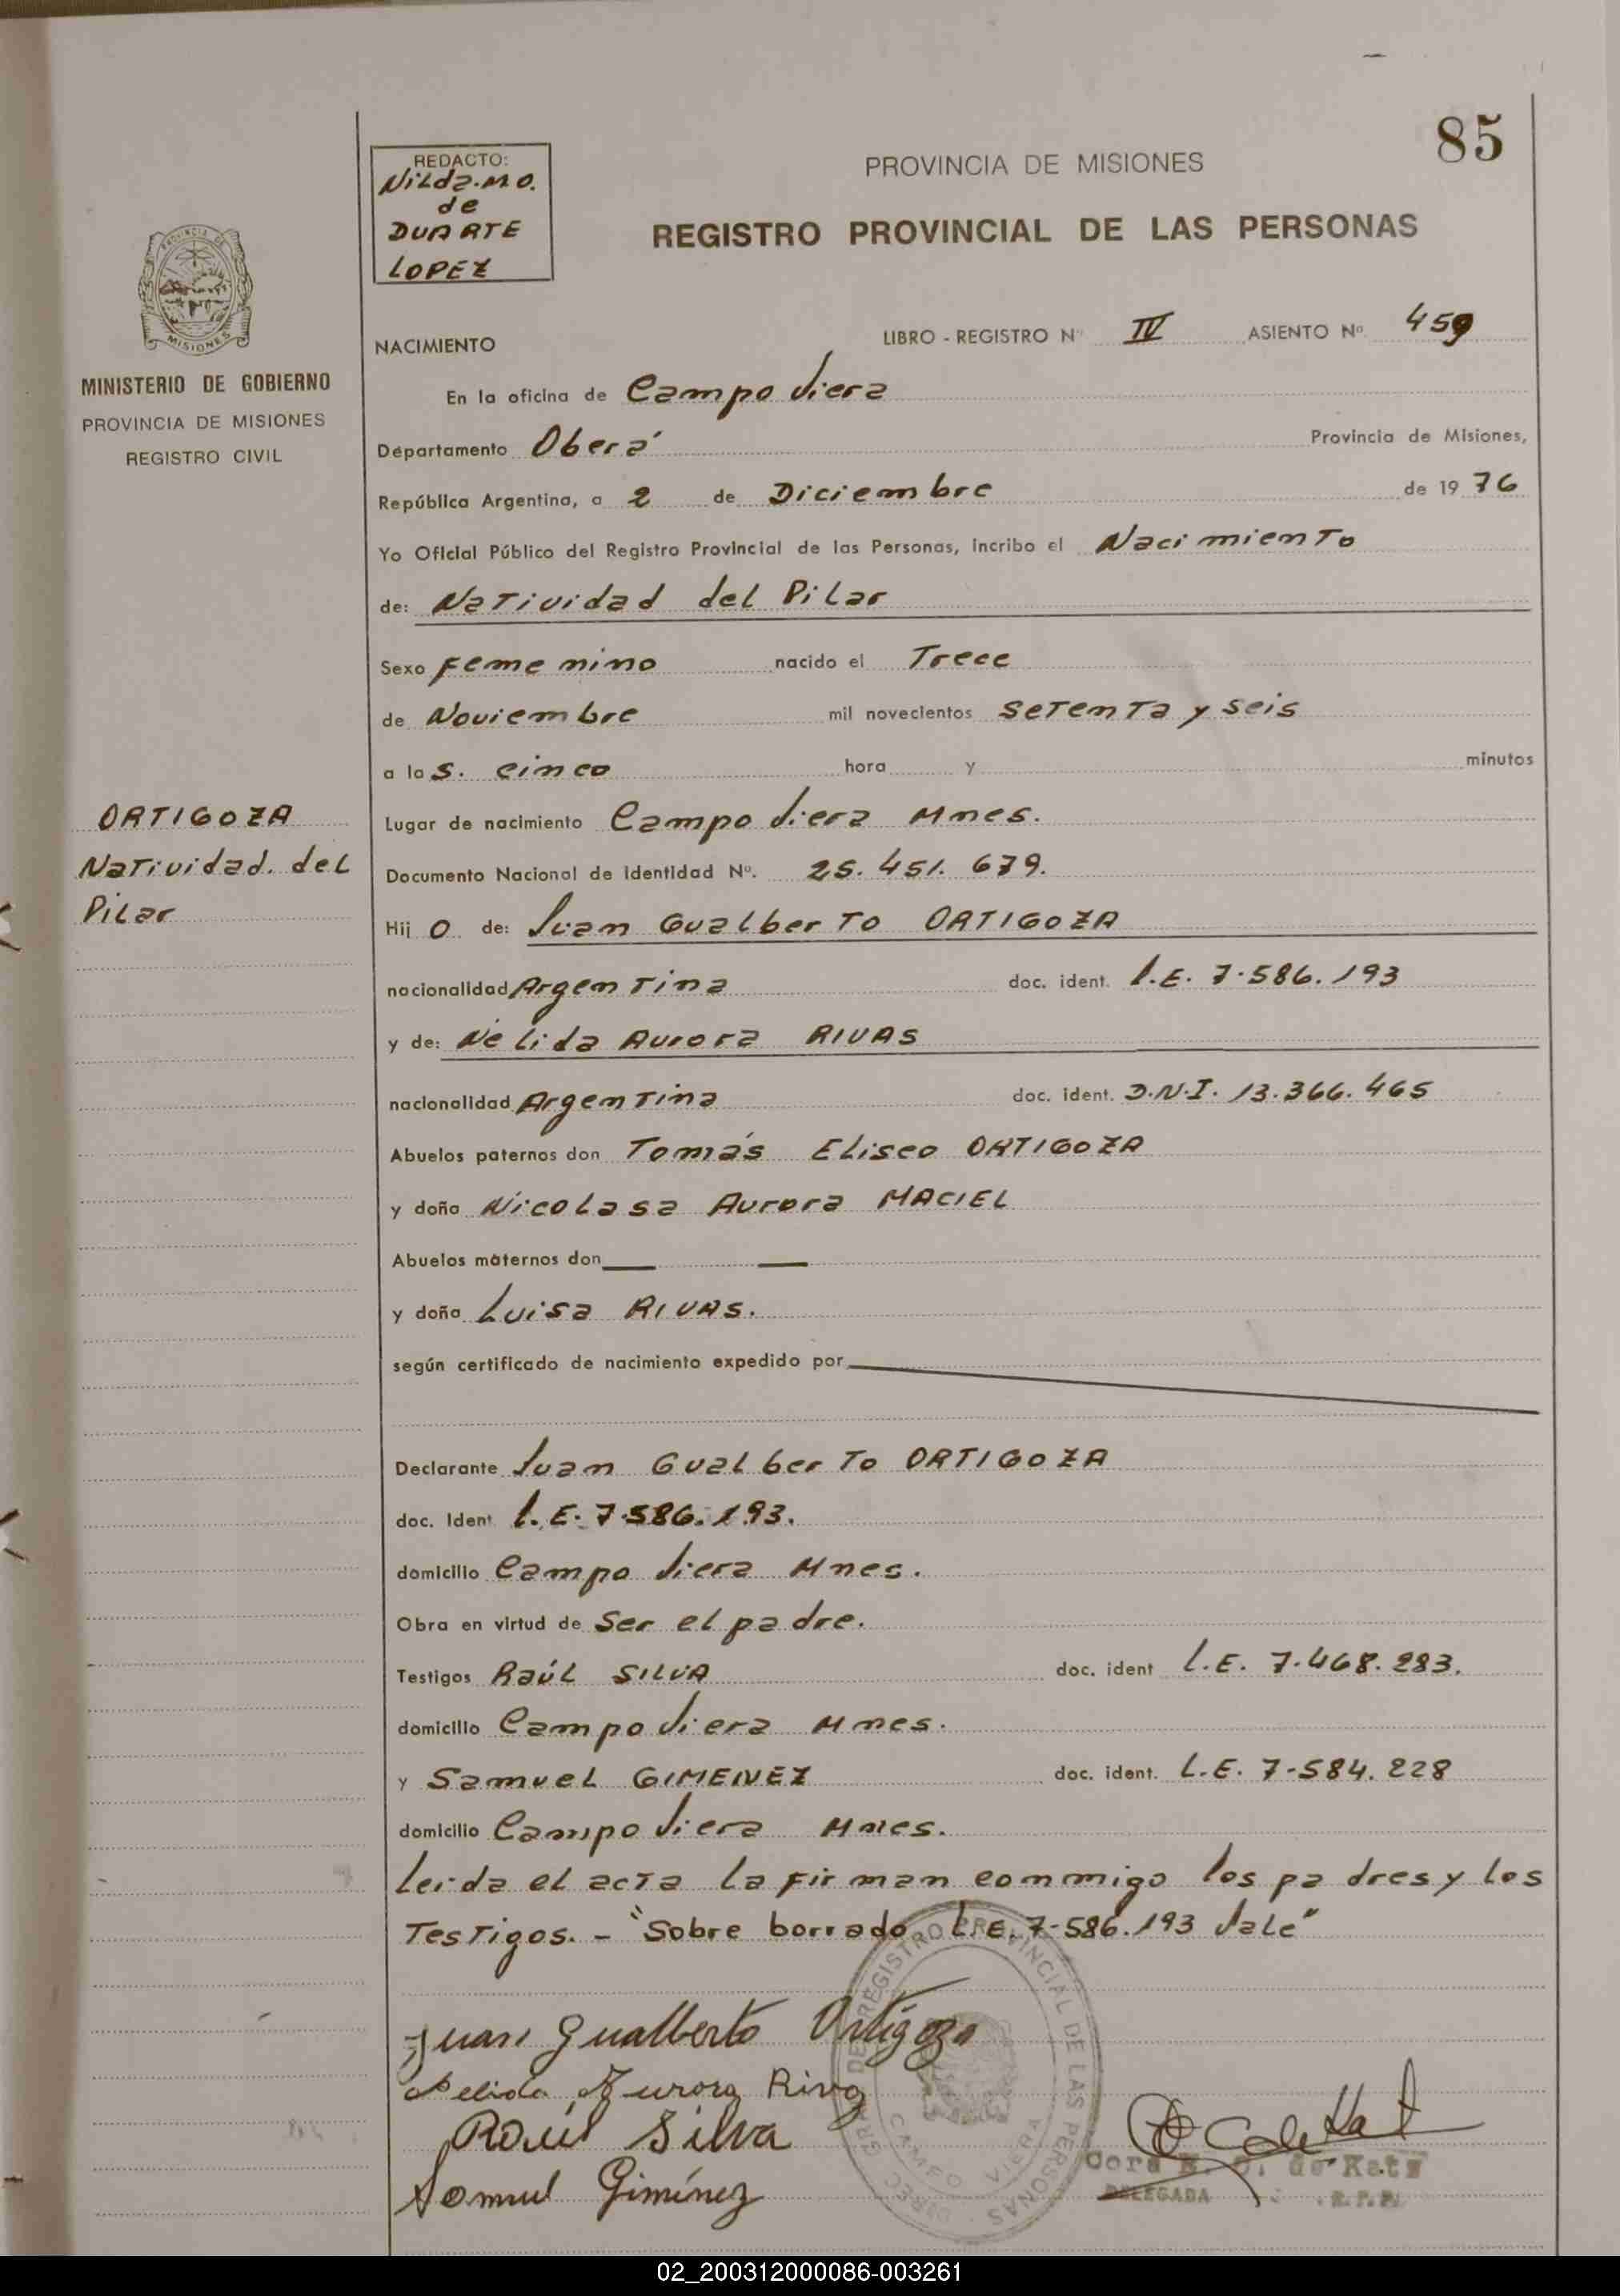 85
REDACTO:
Nilda.M.O.
de
DUARTE
LOPEZ
PROVINCIA DE MISIONES
REGISTRO PROVINCIAL DE LAS PERSONAS
MISIONES
MINISTERIO DE GOBIERNO
PROVINCIA DE MISIONES
REGISTRO CIVIL
NACIMIENTO LIBRO - REGISTRO Nº IV ASIENTO Nº 459
En la oficina de Campo Viera
Departamento Oberá Provincia de Misiones,
República Argentina, a 2 de Diciembre de 1976
Yo Oficial Público del Registro Provincial de las Personas, incribo el Nacimiento
de: Natividad del Pilar
Sexo Femenino nacido el Trece
de Noviembre mil novecientos setenta y seis
a las. cinco hora y minutos
ORTIGOZA
Natividad. del
Pilar
Lugar de nacimiento Campo Viera Mnes.
Documento Nacional de Identidad Nº. 25.451.679.
Hijo de: Juan Gualberto ORTIGOZA
nacionalidad Argentina doc. ident. L.E. 7.586.193
y de: Nélida Aurora RIVAS
nacionalidad Argentina doc. ident. D.N.I. 13.366.465
Abuelos paternos don Tomás Eliseo ORTIGOZA
y doña Nicolasa Aurora MACIEL
Abuelos maternos don
y doña Luisa RIVAS.
según certificado de nacimiento expedido por
Declarante Juan Gualberto ORTIGOZA
doc. Ident L.E. 7.586.193.
domicilio Campo Viera Mnes.
Obra en virtud de Ser el padre.
Testigos Raúl SILVA doc. ident L.E. 7.468.283.
domicilio Campo Viera Mnes.
y Samuel GIMENEZ doc. ident. L.E. 7-584.228
domicilio Campo Viera Mnes.
Leida el acta la firman conmigo los padres y los
Testigos. - "Sobre borrado L.E. 7-586.193 Vale"
Juan Gualberto Ortigoza
Nelida Aurora Riva
Raúl Silva
Samuel Giménez
DIREC. GRAL. DEL REGISTRO PROVINCIAL DE LAS PERSONAS
CAMPO VIERA
de Katz
DELEGADA R.P.P.
02_200312000086-003261